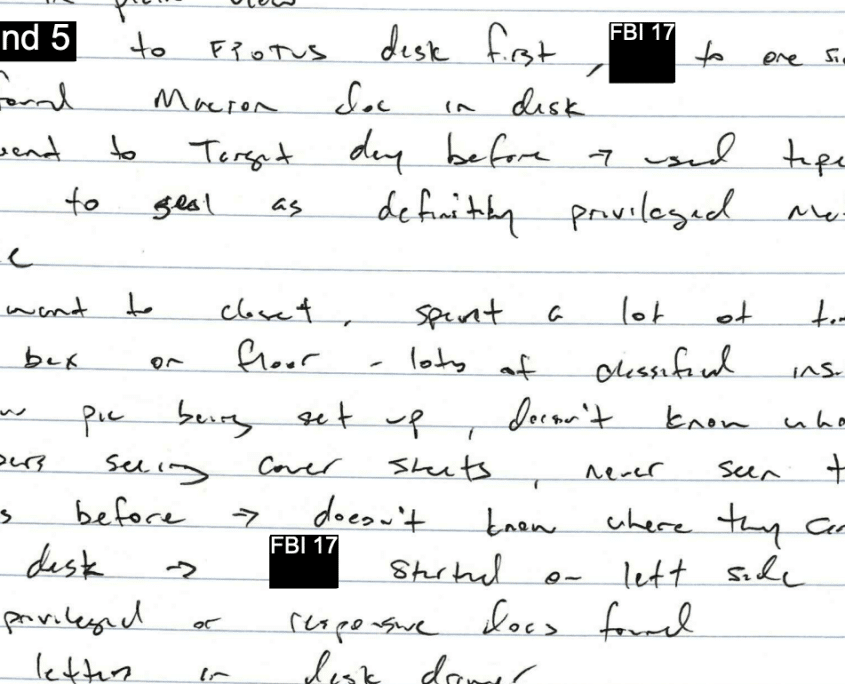 nd 5 to FPOTUS desk first, FBI 17 to one si
found Macron doc in desk
went to Target day before → used tape
to seal as definitely privileged
went to closet, spent a lot of
box on floor - lots of classified ins
pic being set up, doesn't know who
seeing cover sheets, never seen
s before → doesn't know where they
desk → FBI 17 started on left side
privileged or responsive docs found
letters in desk drawer